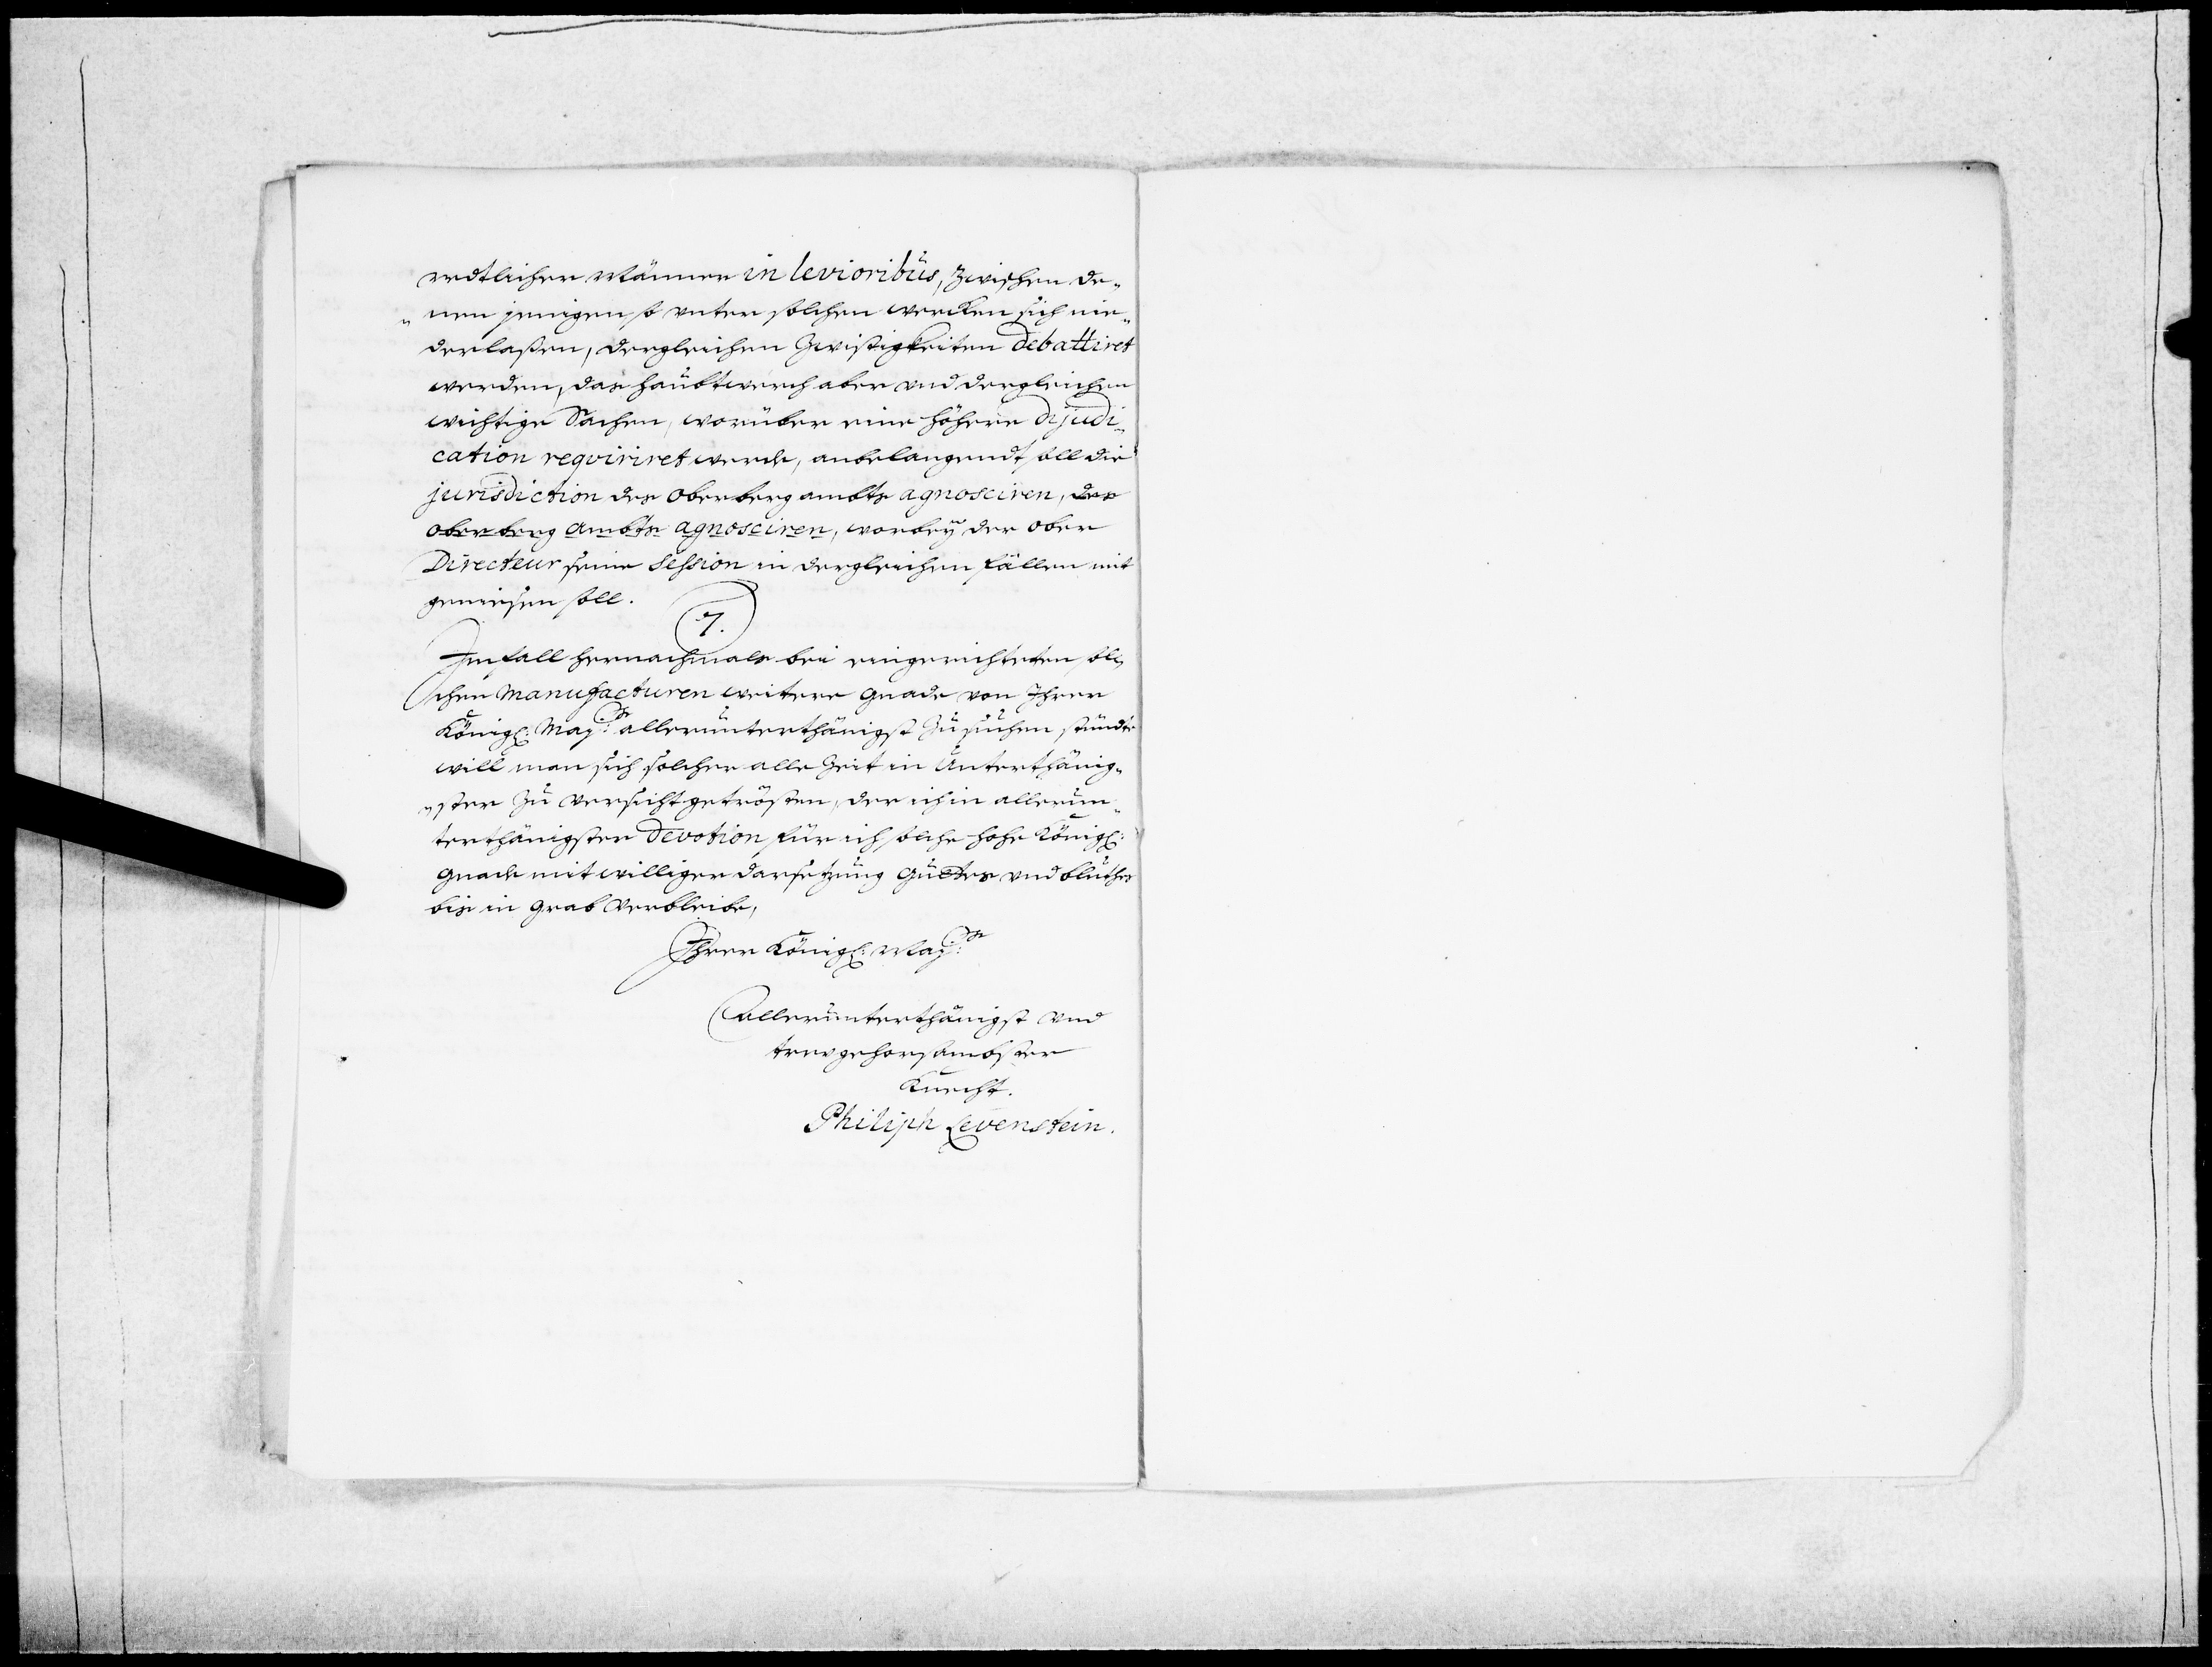 redtlicher Männer in levioribus, zwischen de„
„nen jenigen so unter solchen wercken sich nie„
derlaßen, dergleichen Zwistigkeiten debattiret
werden, das haubtwerch aber und dergleichen
wichtige Sachen, worüber eine höhere dijudi„
cation requiriret werde, anbelangendt soll die
jurisdiction des Oberberg ambts agnosciren, des
oberberg ambts agnosciren, worbeÿ der ober
Directeur seine Session in dergleichen fällen mit
geniesen soll.
7.
Im fall hernachmals bei eingerichteten sol„
chen Manufacturen weitere gnade von Ihrer
Königl: May:tt allerunterthänigst zu suchen stünde
will man sich solcher alle Zeit in Unterthänig„
„ster Zu versicht getrösten, der ich in allerun„
terthänigster Devotion für ich solche hohe Königl:
gnade mit williger darsetzung guthes und bluthes
bis in grab verbleibe,
Ihrer Königl: May:tt
allerunterthänigst und
trewgehorsambster
Knecht.
Philiph Levenstein.